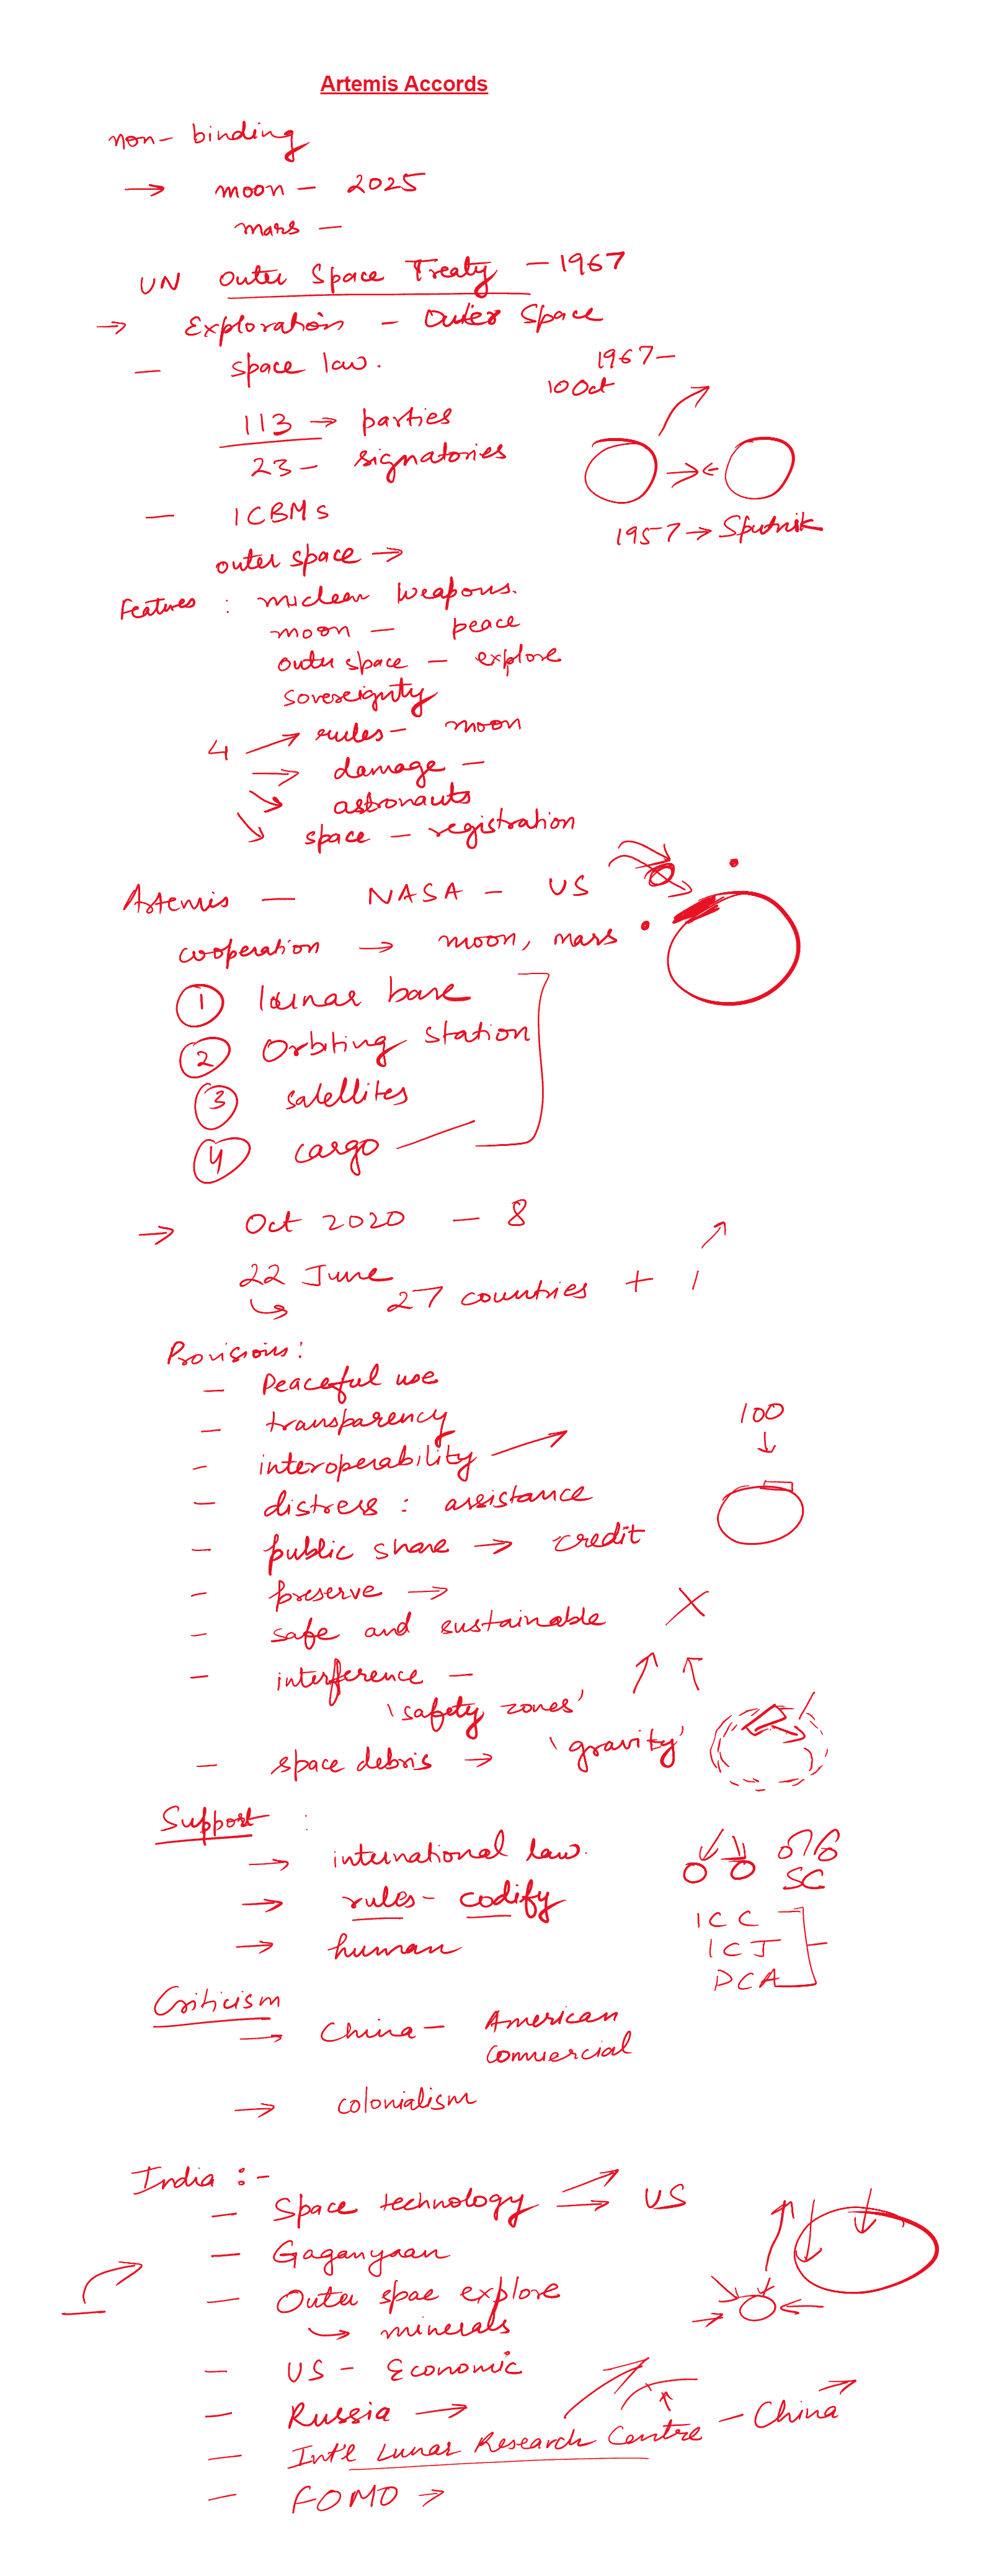 Artemis Accords
non- binding
→ moon - 2025
mars -
UN Outer Space Treaty - 1967
→ Exploration - Outer Space
- space law.
1967-
10 Oct
113 → parties
23 - signatories
- ICBMs
1957 → Sputnik
outer space →
Features : nuclear weapons.
moon - peace
outer space - explore
sovereignty
4 → rules - moon
→ damage -
→ astronauts
→ space - registration
Artemis - NASA - US
cooperation → moon, mars
1 lunar base
2 Orbiting station
3 satellites
4 cargo
→ Oct 2020 - 8
22 June
27 countries + 1
Provisions:
- Peaceful use
- transparency
100
- interoperability
- distress : assistance
- public share → credit
- preserve →
- safe and sustainable
- interference -
'safety zones'
- space debris → 'gravity'
Support :
→ international law.
SC
→ rules - codify
ICC
→ human
ICJ
PCA
Criticism
→ China - American
Commercial
→ colonialism
India :-
- Space technology → US
- Gaganyaan
- Outer spae explore
→ minerals
- US - Economic
- Russia →
- Int'l Lunar Research Centre - China
- FOMO →